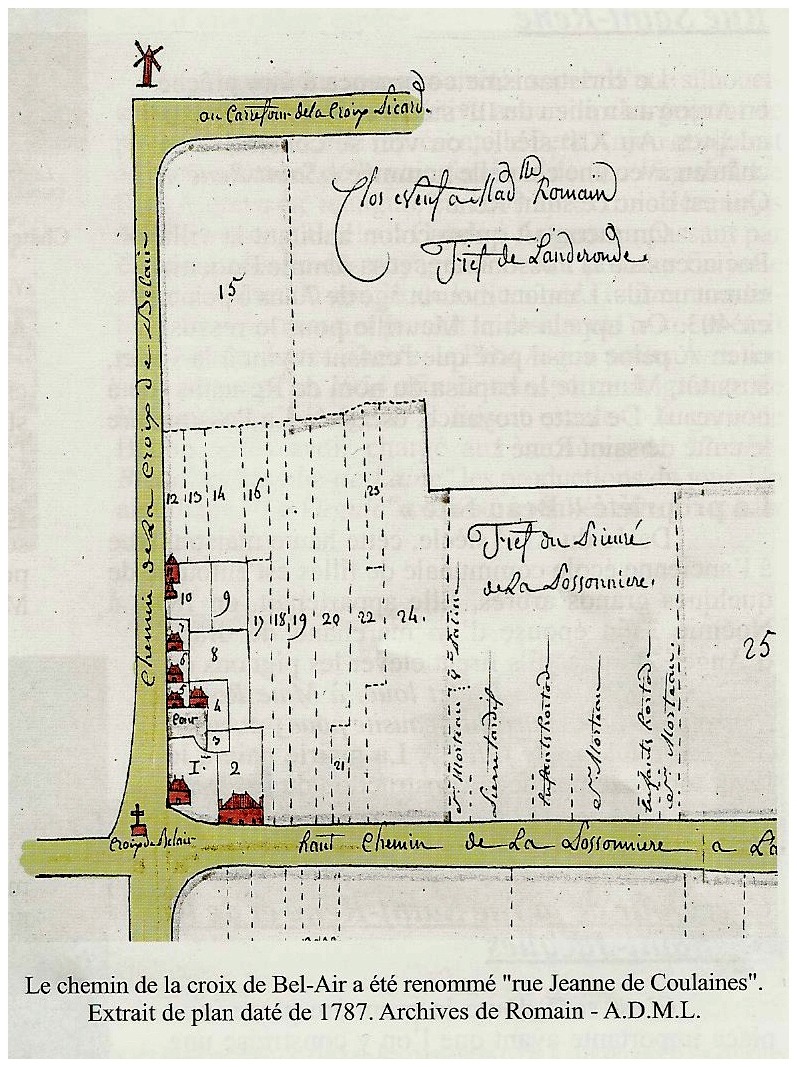 au Carrefour de la Croix Sicard.
Clos & vent a Mad lle Romain
Fief de Landeronde.
Chemin de la Croix de Belair
15
12 13 14 16
23
Fief du Prieuré
de la Possonniere.
10 9
17 18 19 20 22 24.
25
7
8
6
5
4
Cour
3
1. 2
21
Pierre Tardif
Enfants Rortode
Sr Morteau
Enfants Rortode
Sr Morteau
Croix de Belair
haut Chemin de La Possonniere a La
Le chemin de la croix de Bel-Air a été renommé "rue Jeanne de Coulaines".
Extrait de plan daté de 1787. Archives de Romain - A.D.M.L.